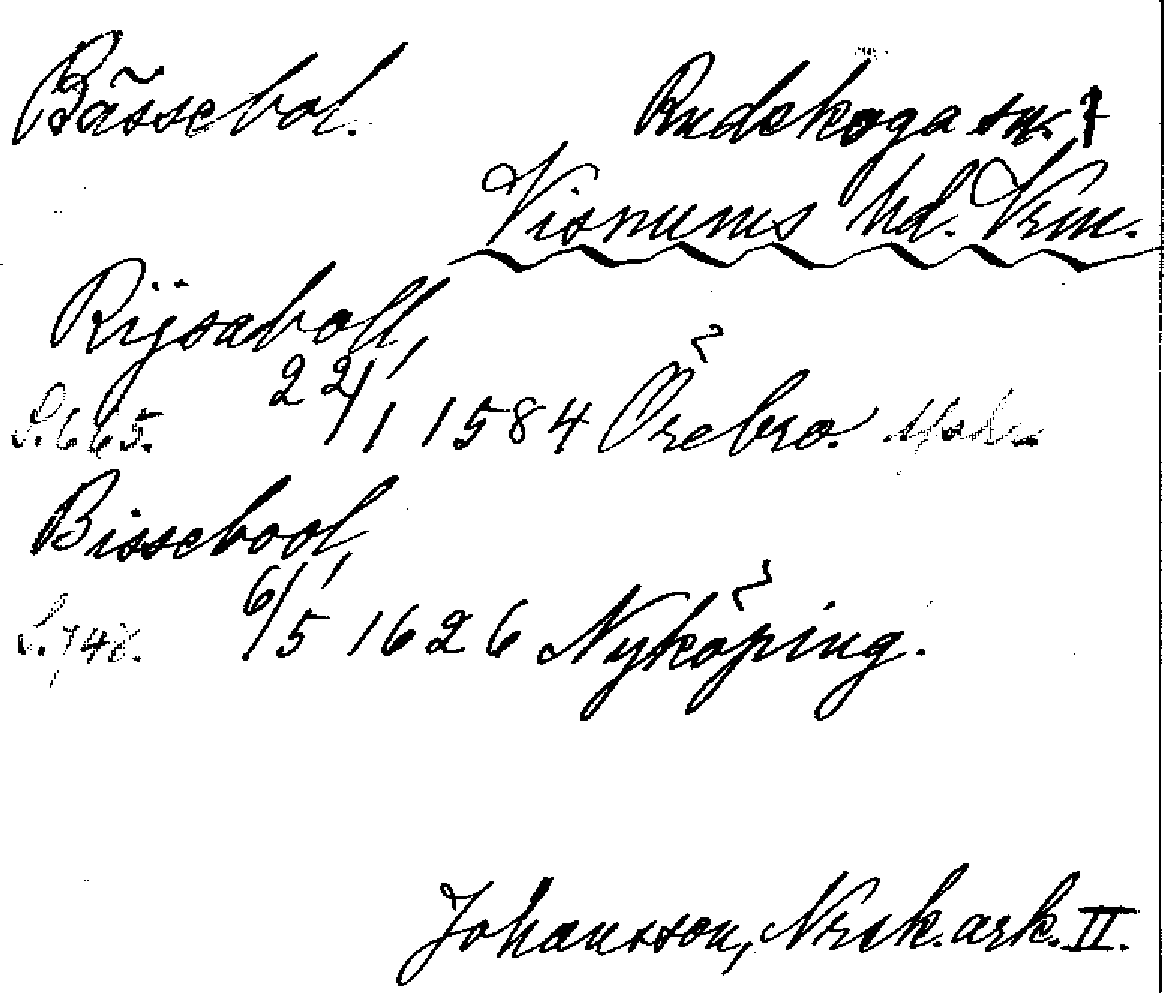 Bässebol. Rudskoga sn. †
Visnums hd. Vrm.
Rijsaboll,
S. 665. 22/1 1584 Örebro.
Bissebool,
S. 748. 6/5 1626 Nyköping.
Johansson, Nrck. ark. II.